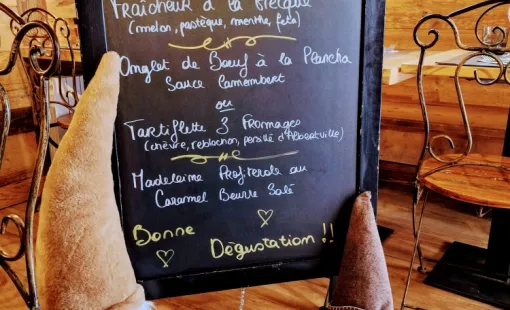 Fraîcheur à la Grecque
(melon, pastèque, menthe, feta)
Onglet de Bœuf à la Plancha
Sauce Camembert
ou
Tartiflette 3 Fromages
(chèvre, reblochon, persillé d'Albertville)
Madeleine Profiterole au
Caramel Beurre Salé
Bonne
Dégustation !!